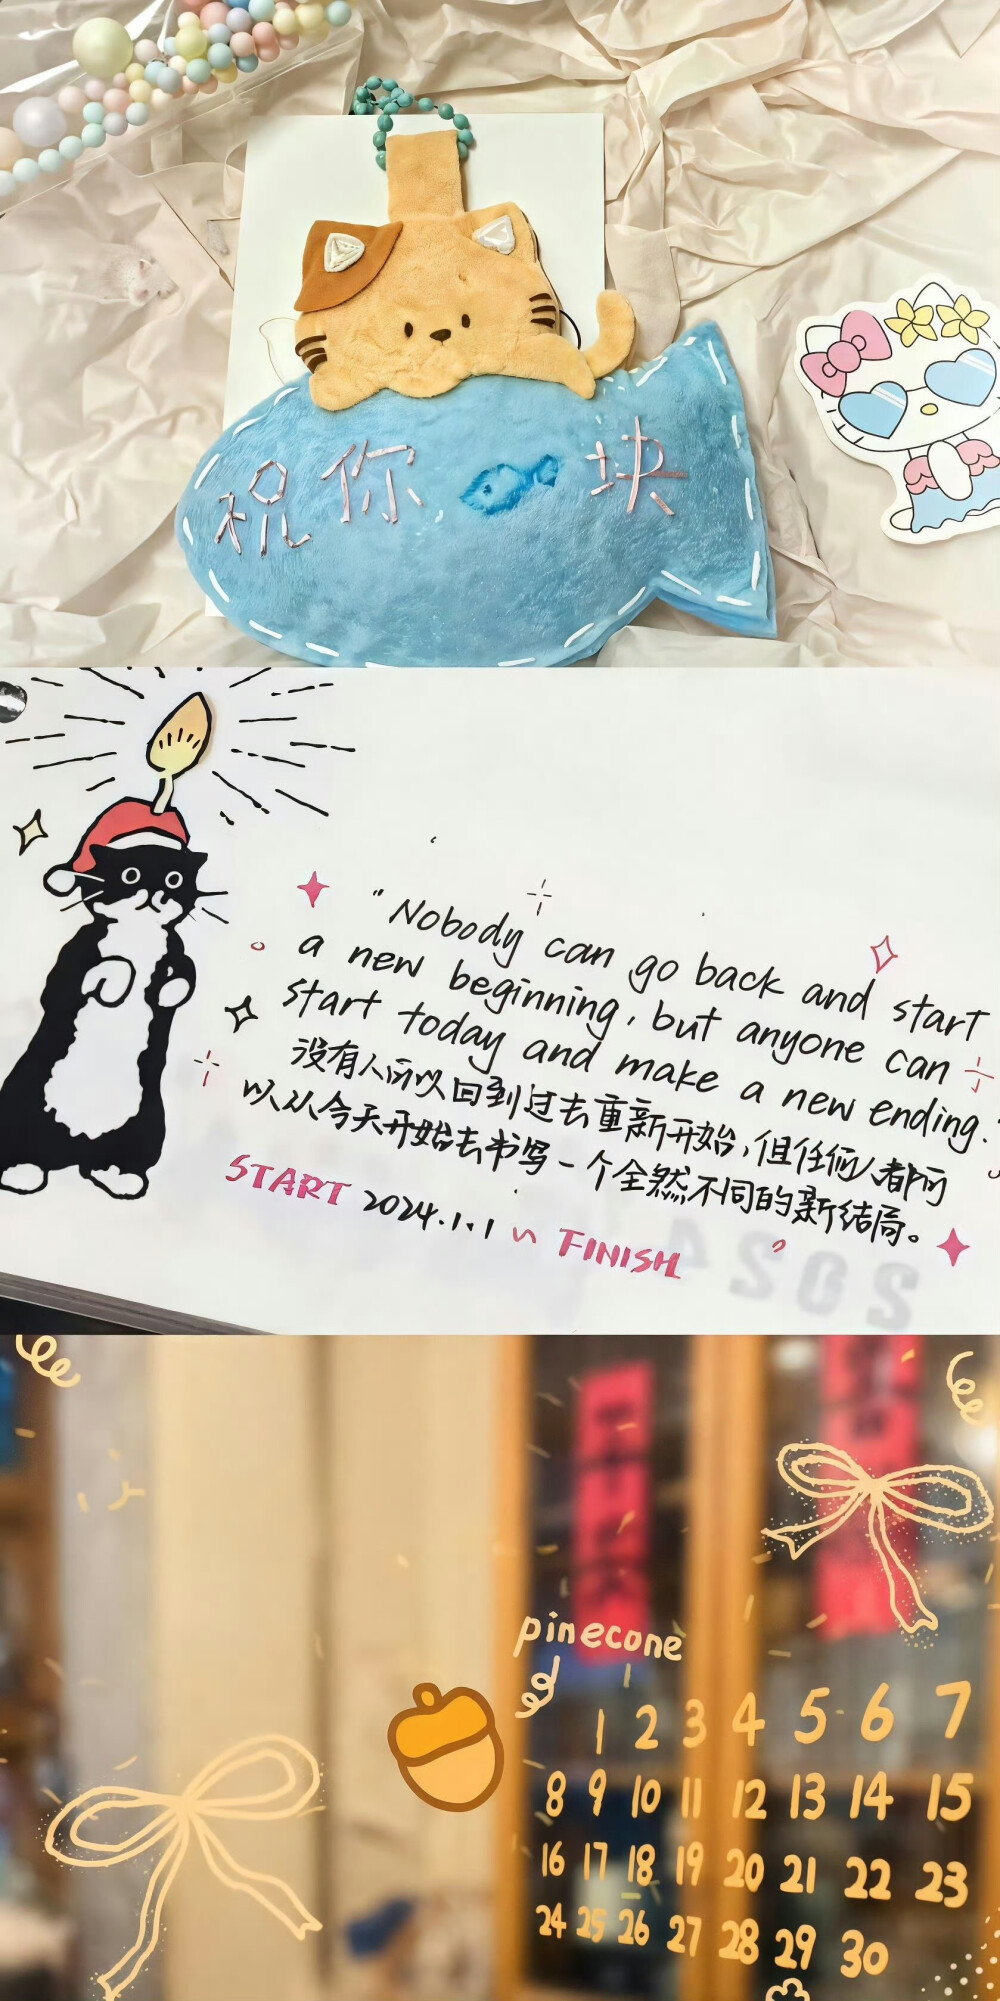 祝你 块
"Nobody can go back and start
a new beginning, but anyone can
start today and make a new ending."
没有人可以回到过去重新开始,但任何人都可
以从今天开始去书写一个全然不同的新结局。
START 2024.1.1 ~ FINISH
2024
pinecone
1 2 3 4 5 6 7
8 9 10 11 12 13 14 15
16 17 18 19 20 21 22 23
24 25 26 27 28 29 30